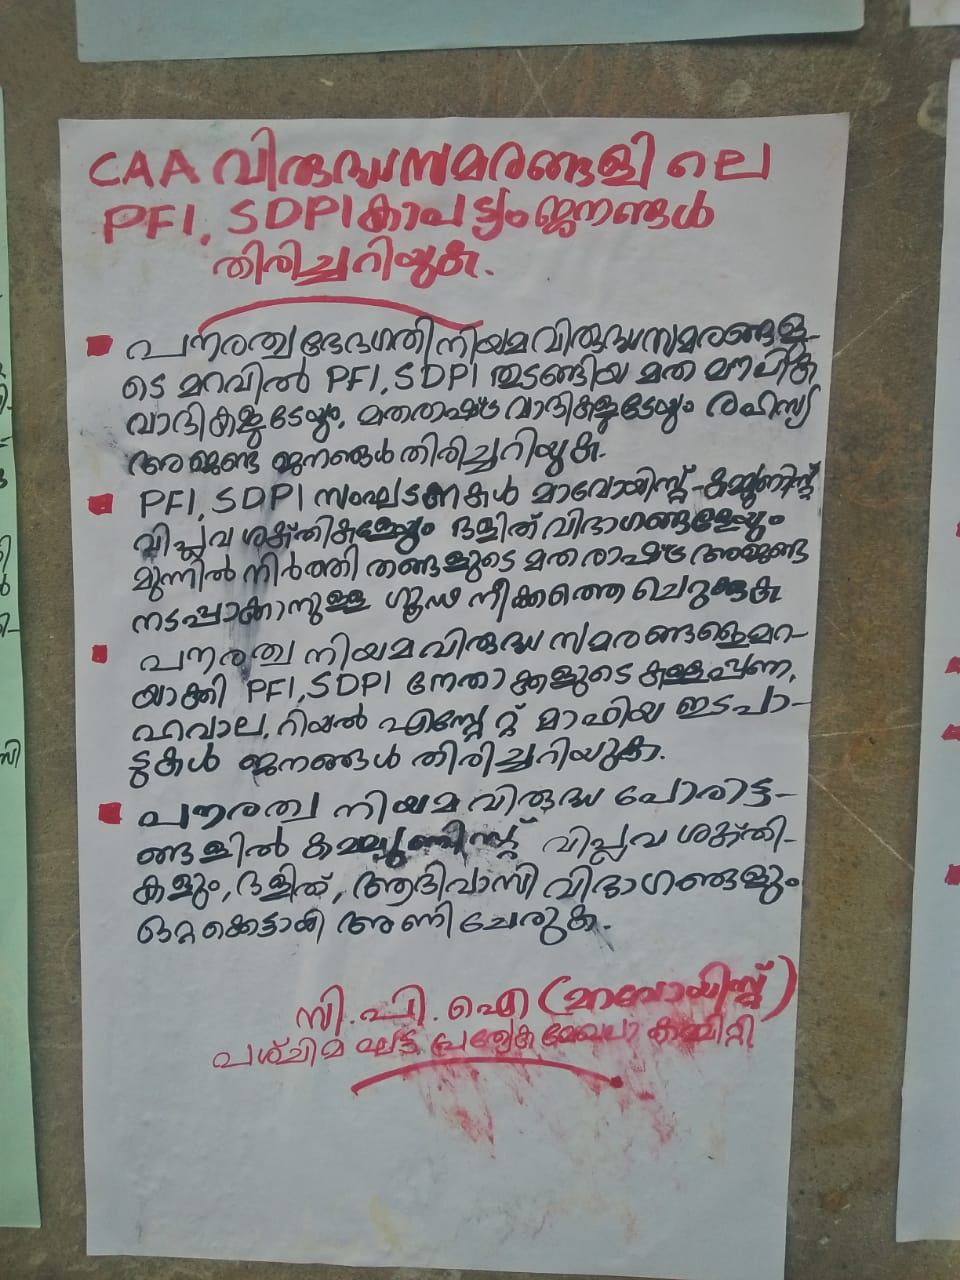 CAA വിരുദ്ധസമരങ്ങളിലെ
PFI, SDPI കാപട്യം ജനങ്ങൾ
തിരിച്ചറിയുക.
പൗരത്വ ഭേദഗതി നിയമവിരുദ്ധസമരങ്ങളു-
ടെ മറവിൽ PFI, SDPI തുടങ്ങിയ മത മൗലിക
വാദികളുടേയും, മതരാഷ്ട്ര വാദികളുടേയും രഹസ്യ
അജണ്ട ജനങ്ങൾ തിരിച്ചറിയുക.
PFI, SDPI സംഘടനകൾ മാവോയിസ്റ്റ്-കമ്മ്യൂണിസ്റ്റ്
വിപ്ലവ ശക്തികളേയും ദളിത് വിഭാഗങ്ങളേയും
മുന്നിൽ നിർത്തി തങ്ങളുടെ മതരാഷ്ട്ര അജണ്ട
നടപ്പാക്കാനുള്ള ഗൂഢ നീക്കത്തെ ചെറുക്കുക
പൗരത്വ നിയമവിരുദ്ധ സമരങ്ങളെമറ-
യാക്കി PFI, SDPI നേതാക്കളുടെ കള്ളപ്പണ,
ഹവാല, റിയൽ എസ്റ്റേറ്റ് മാഫിയ ഇടപാ-
ടുകൾ ജനങ്ങൾ തിരിച്ചറിയുക.
പൗരത്വ നിയമവിരുദ്ധ പോരാട്ട-
ങ്ങളിൽ കമ്മ്യൂണിസ്റ്റ് വിപ്ലവ ശക്തി-
കളും, ദളിത്, ആദിവാസി വിഭാഗങ്ങളും
ഒറ്റക്കെട്ടായി അണിചേരുക.
സി.പി.ഐ (മാവോയിസ്റ്റ്)
പശ്ചിമ ഘട്ട പ്രത്യേക മേഖലാ കമ്മിറ്റി